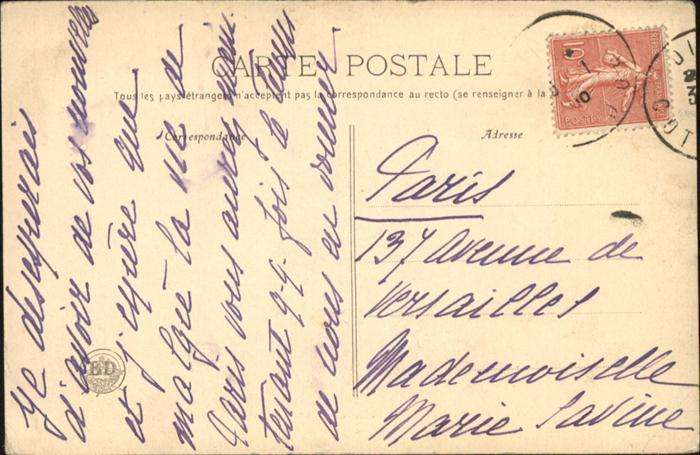 CARTE POSTALE
Tous les pays étrangers n'acceptent pas la correspondance au recto (se renseigner à la
Correspondance
Adresse
Je désespérais
d'avoir de vos nouvelles
et j'espère que
malgré la vie de
Paris vous aurez
fois le temps
de nous en donner
Paris
137 Avenue de
Versailles
Mademoiselle
Marie
10
POSTES
ED